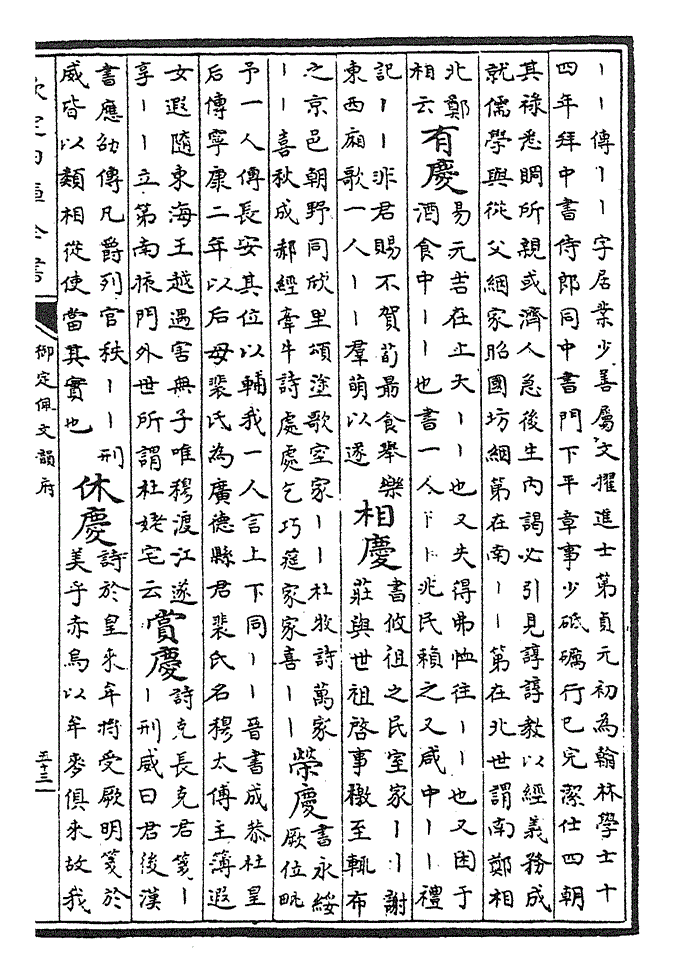 丨丨傳丨丨字居業少善屬文擢進士第貞元初為翰林學士十
四年拜中書侍郎同中書門下平章事少砥礪行已完潔仕四朝
其祿悉賙所親或濟人急後生内謁必引見諄諄教以經義務成
就儒學與從父絪家昭國坊絪第在南丨丨第在北世謂南鄭相
北鄭
相云
有慶
易元吉在上大丨丨也又失得弗恤往丨丨也又困于
酒食中丨丨也書一人丨丨兆民賴之又咸中丨丨禮
記丨丨非君賜不賀荀朂食舉樂
東西廂歌一人丨丨羣萌以遂
相慶
書攸徂之民室家丨丨謝
莊與世祖啓事檄至輒布
之京邑朝野同欣里頌塗歌室家丨丨杜牧詩萬家
丨丨喜秋成郝經牽牛詩處處乞巧筵家家喜丨丨
榮慶
書永綏
厥位毗
予一人傳長安其位以輔我一人言上下同丨丨晉書成恭杜皇
后傳寧康二年以后母裴氏為廣德縣君裴氏名穆太傅主簿遐
女遐隨東海王越遇害無子唯穆渡江遂
享丨丨立第南掖門外世所謂杜姥宅云
賞慶
詩克長克君箋丨
丨刑威曰君後漢
書應劭傳凡爵列官秩丨丨刑
威皆以類相從使當其實也
休慶
詩於皇來牟將受厥明箋於
美乎赤烏以牟麥俱來故我
欽定四庫全書
御定佩文韻府
五十三